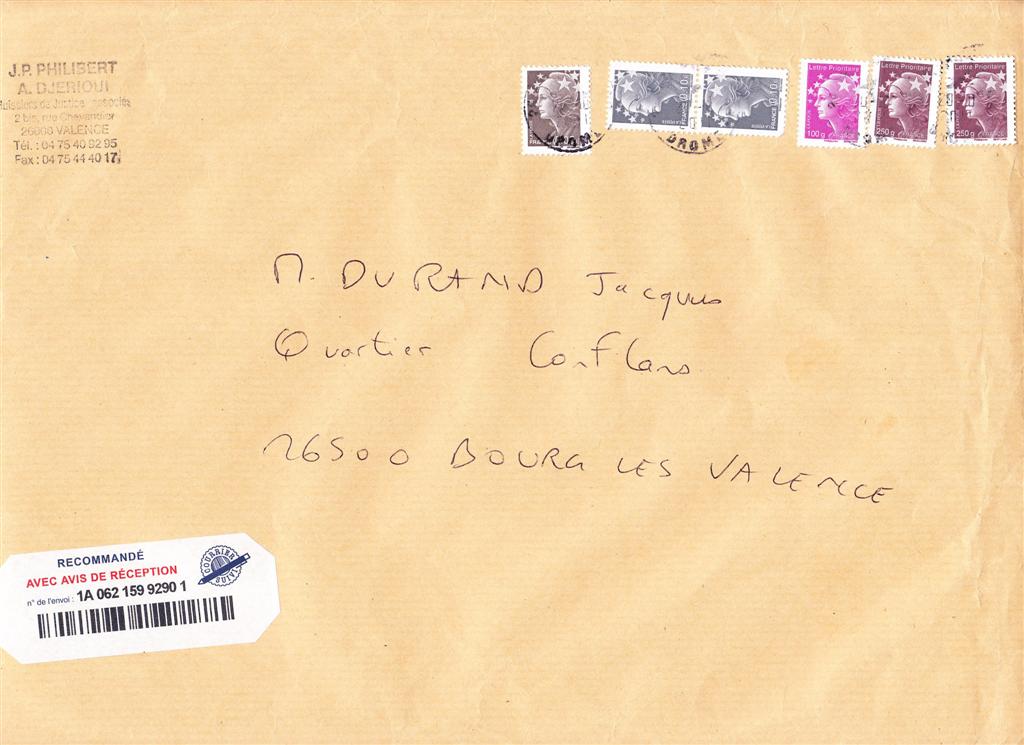 J.P. PHILIBERT
A. DJERIOUI
Huissiers de Justice associés
2 bis, rue Chevandier
26000 VALENCE
Tél. : 04 75 40 92 95
Fax : 04 75 44 40 17
FRANCE 0,10
FRANCE 0,10
Lettre Prioritaire
100 g FRANCE
Lettre Prioritaire
250 g FRANCE
Lettre Prioritaire
250 g FRANCE
DROME
DROME
M. DURAND Jacques
Quartier Conflans
26500 BOURG LES VALENCE
RECOMMANDÉ
AVEC AVIS DE RÉCEPTION
n° de l'envoi : 1A 062 159 9290 1
COURRIER SUIVI